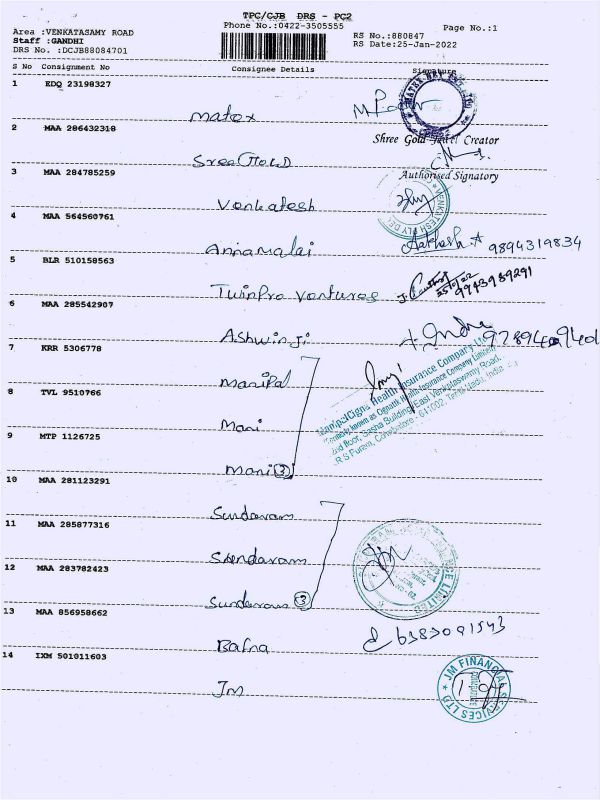 TPC/CJB DRS - PC2
Phone No.:0422-3505555
Page No.:1
Area :VENKATASAMY ROAD
Staff :GANDHI
DRS No. :DCJB88084701
RS No.:880847
RS Date:25-Jan-2022
S No Consignment No Consignee Details Signature
1 EDQ 23198327
Matex
2 MAA 286432318
Shree Gold Jewel Creator
Sree GOLD
3 MAA 284785259
Authorised Signatory
Venkatesh
4 MAA 564560761
Annamalai 9894319834
5 BLR 510158563
TwinPro Ventures
25/01/22
6 MAA 285542907
Ashwinji
7 KRR 5306778
Manipal
8 TVL 9510766
Mani
9 MTP 1126725
Mani 3
ManipalCigna Health Insurance Company Ltd
2nd floor, Sasha Building, East Venkataswamy Road,
R S Puram, Coimbatore - 641002, Tamil Nadu, India
10 MAA 281123291
Sundaram
11 MAA 285877316
Sundaram
12 MAA 283782423
Sundaram 3
13 MAA 856958662
Bafna 6383091543
14 IXM 501011603
Jm
JM FINANCIAL SERVICES LTD